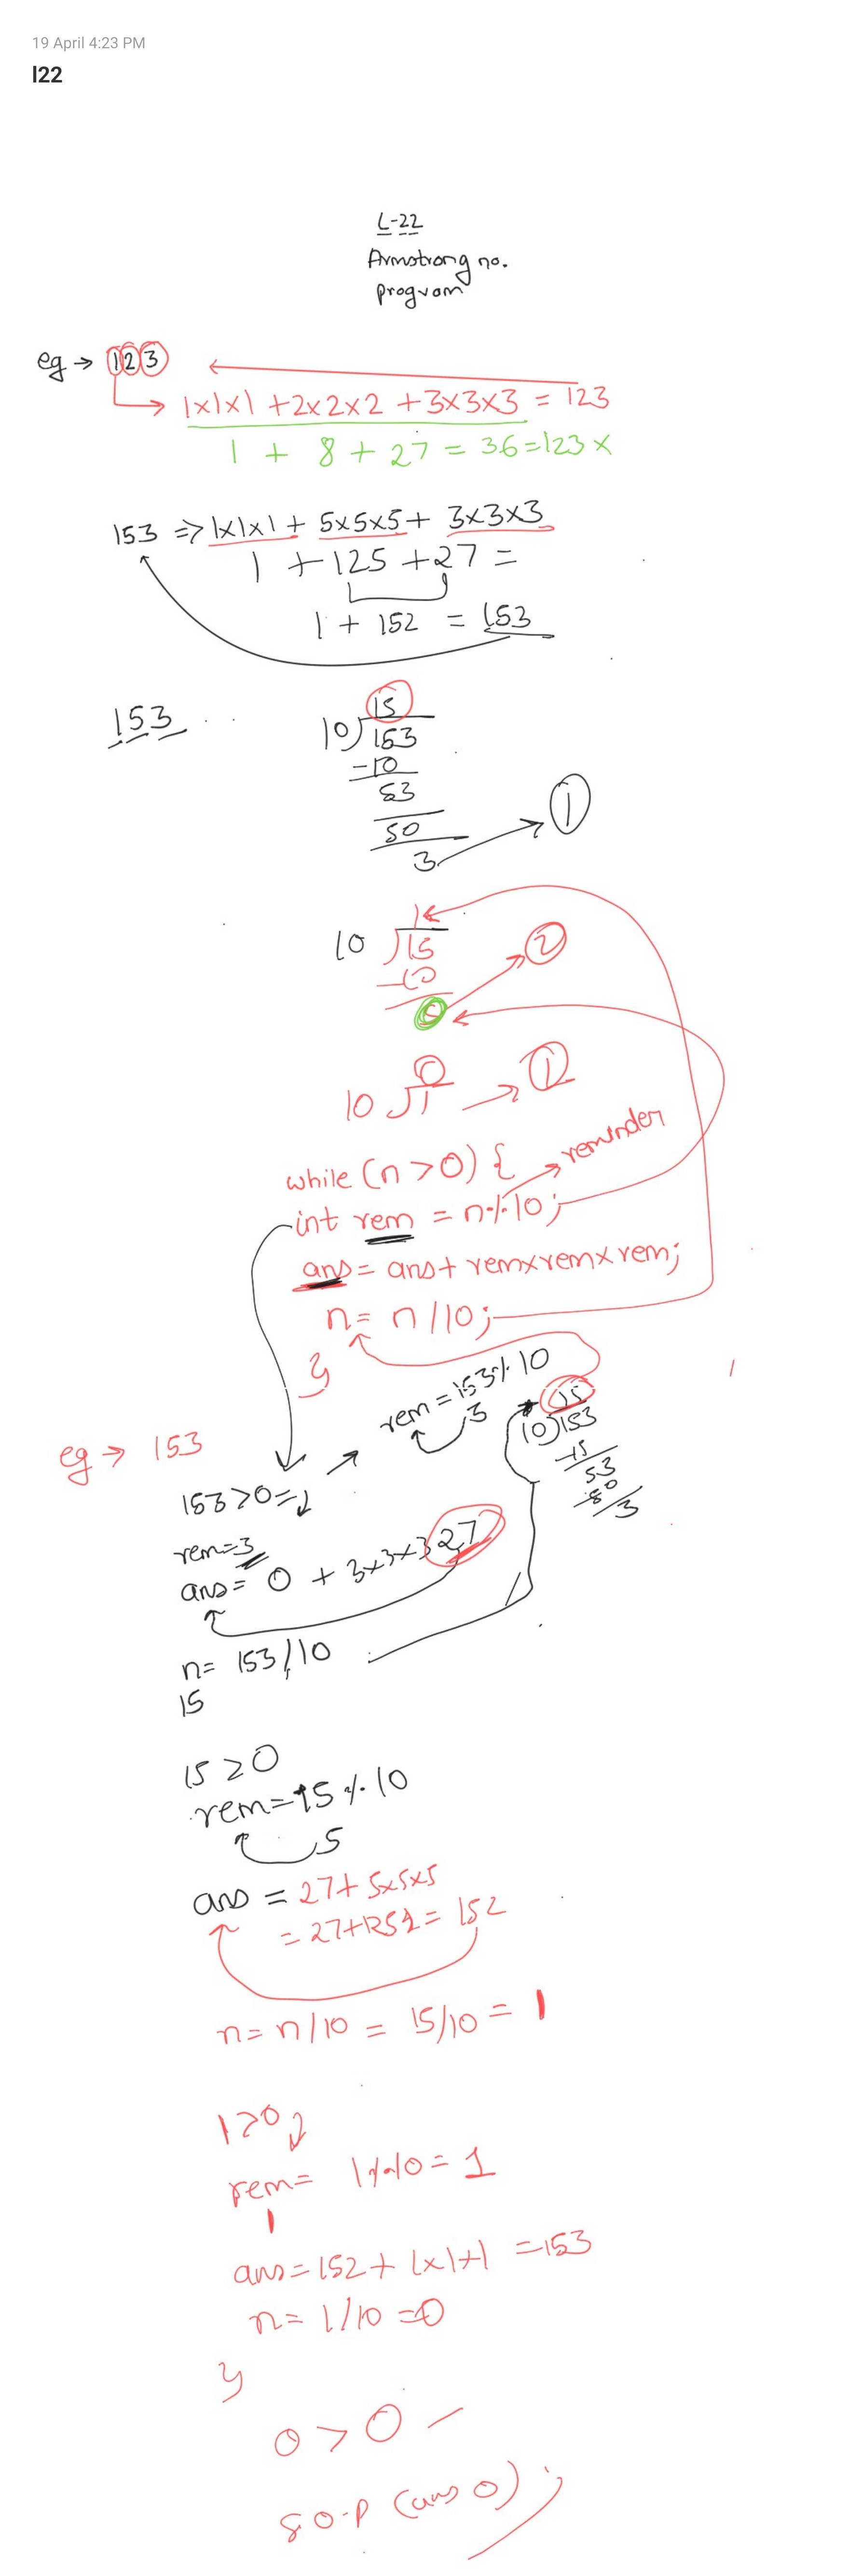 19 April 4:23 PM
l22
L-22
Armstrong no.
program
eg → 123
1x1x1 +2x2x2 +3x3x3 = 123
1 + 8 + 27 = 36 = 123 x
153 => 1x1x1 + 5x5x5 + 3x3x3
1 + 125 + 27 =
1 + 152 = 153
153
15
10)153
-10
53
50
3
1
1
10)15
-10
2
0
10)1
1
while (n > 0) {
reminder
int rem = n % 10;
ans = ans + rem x rem x rem;
n = n / 10;
}
eg → 153
rem = 153 % 10
3
15
10)153
53
3
153 > 0 =
rem = 3
ans = 0 + 3x3x3 27
n = 153/10
15
15 > 0
rem = 15 % 10
5
ans = 27 + 5x5x5
= 27+125 = 152
n = n/10 = 15/10 = 1
1 > 0
rem = 1 % 10 = 1
1
ans = 152 + 1x1+1 = 153
n = 1/10 = 0
}
0 > 0 –
s.o.p (ans 0) ;